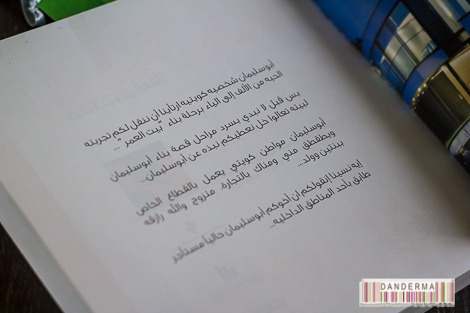 أبوسليمان شخصيه كويتيه ارتأينا أن ننقل لكم تجربته
الحيه من الألف إلى الياء برحلة بناء "بيت العمر"...
بس قبل لا نبدي بسرد مراحل قصة بناء أبوسليمان
لبيته تعالوا خل نعطيكم نبذه عن أبوسليمان...
أبوسليمان مواطن كويتي يعمل بالقطاع الخاص
ويطقطق مني ومناك بالتجارة، متزوج والله رازقه
بنتين وولد...
إيه نسينا انقولكم أن أخوكم أبوسليمان حالياً مستأجر
طابق بأحد المناطق الداخليه...
DANDERMA